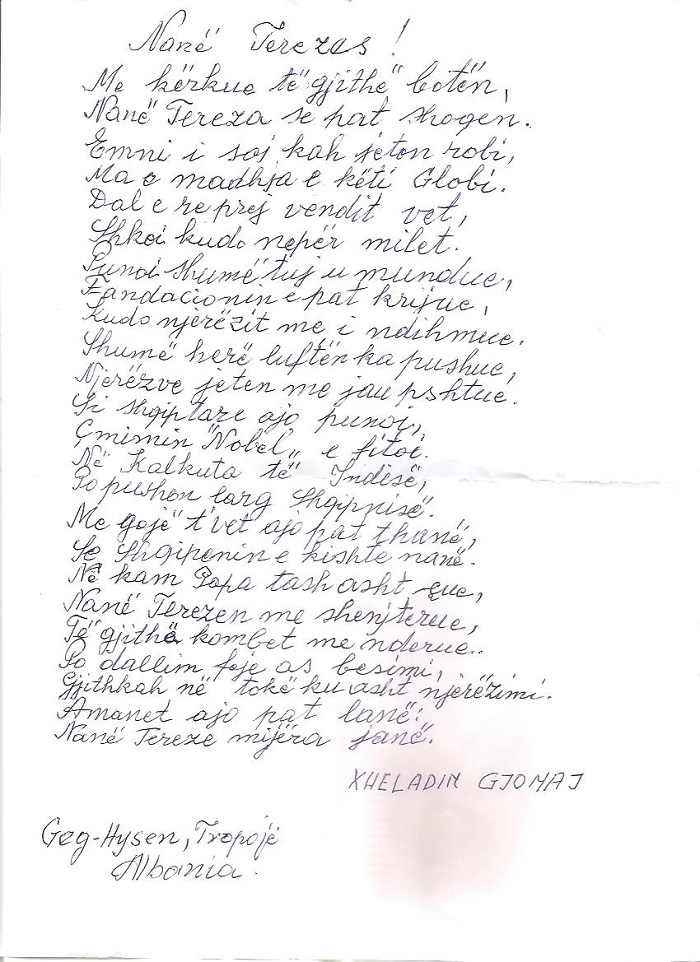 Nanë Terezas!
Me kërkue të gjithë botën,
Nanë Tereza se pat shogen.
Emni i saj kah jeton robi,
Ma e madhja e këti Globi.
Dal e re prej vendit vet,
Shkoi kudo nepër milet.
Punoi shumë tuj u mundue,
Fandacionin e pat krijue,
Kudo njerëzit me i ndihmue.
Shumë herë luftën ka pushue,
Njerëzve jeten me jau pshtue.
Si shqiptare ajo punoi,
Çmimin "Nobel" e fitoi.
Në Kalkuta të Indisë,
Po pushon larg Shqipnisë.
Me gojë t'vet ajo pat thanë,
Se Shqipenin e kishte nanë.
Në kam Papa tash asht çue,
Nanë Terezen me shenjterue,
Të gjithë kombet me nderue..
Po dallim feje as besimi,
Gjithkah në tokë ku asht njerëzimi.
Amanet ajo pat lanë:
Nanë Tereze mijëra janë.
XHELADIN GJONAJ
Geg-Hysen, Tropojë
Albania.